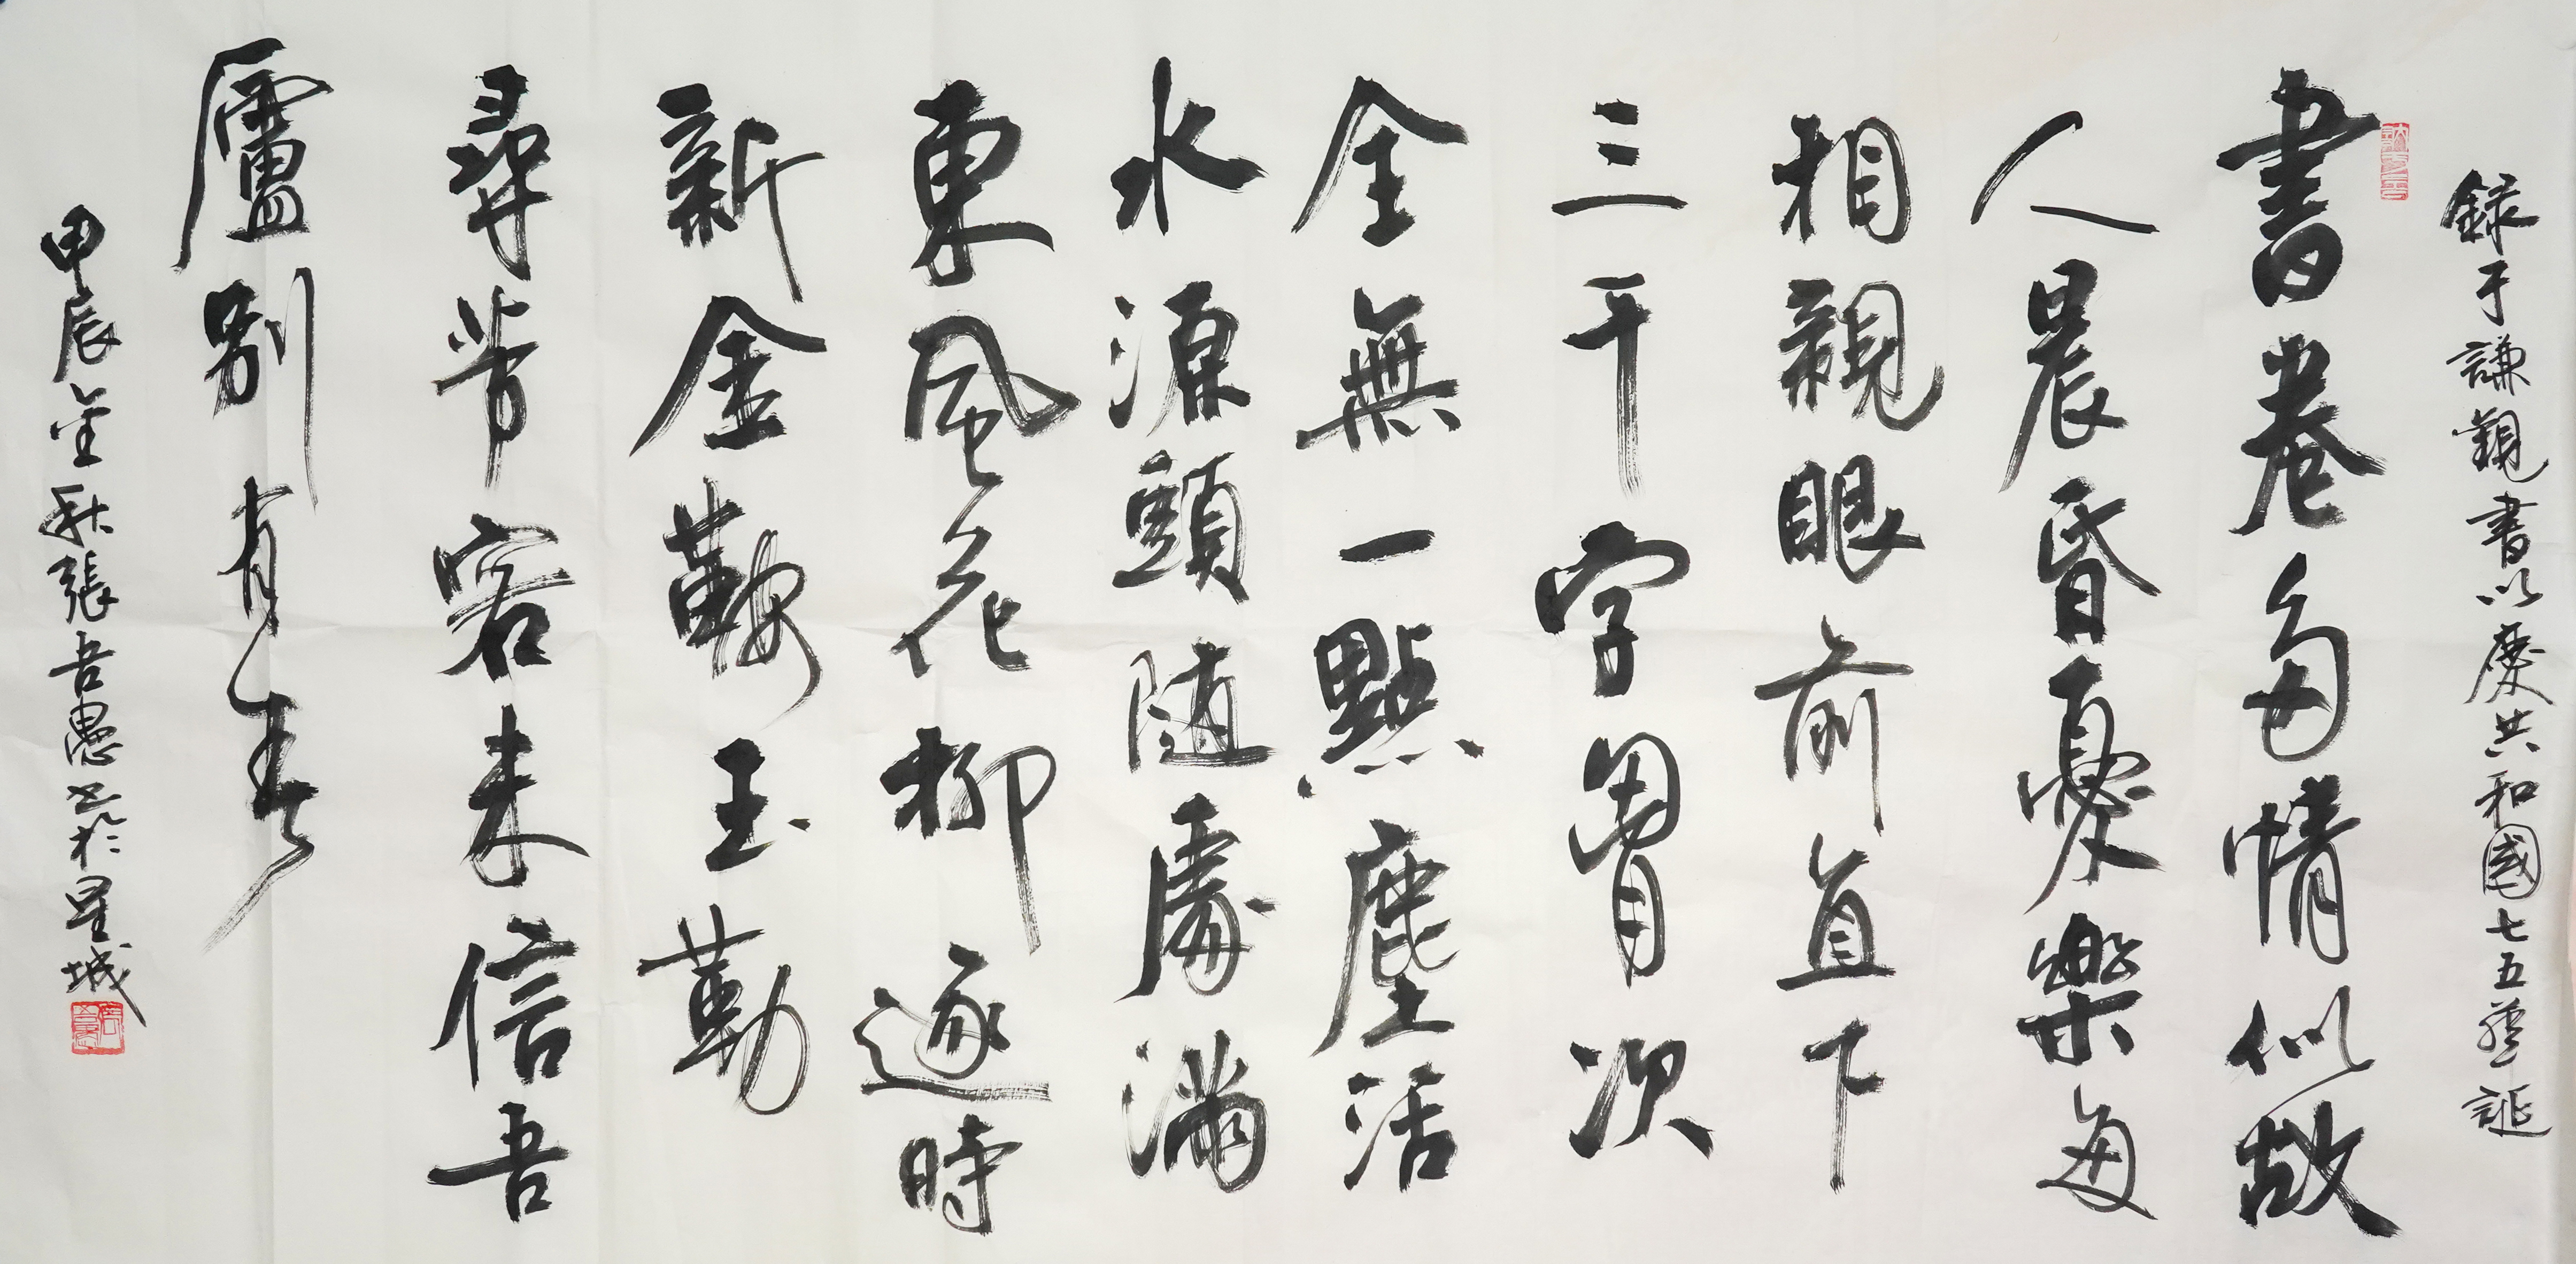 錄于謙觀書以慶共和國七五華誕
書卷多情似故
人晨昏憂樂每
相親眼前直下
三千字胷次
全無一點塵活
水源頭隨處滿
東風花柳逐時
新金鞍玉勒
尋芳客未信吾
廬別有春
甲辰金秋張吾愚书於星城